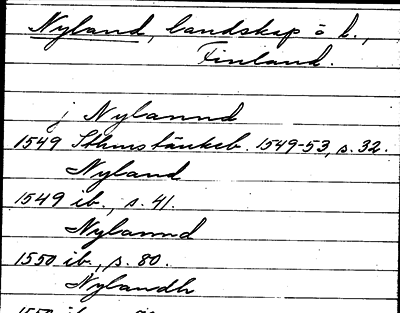 Nyland, landskap ö h.,
Finland.
j Nylannd
1549 Sthms tänkeb. 1549-53, s. 32.
Nyland
1549 ib., s. 41.
Nylannd
1550 ib., s. 80.
Nylandh
1550 ib.,